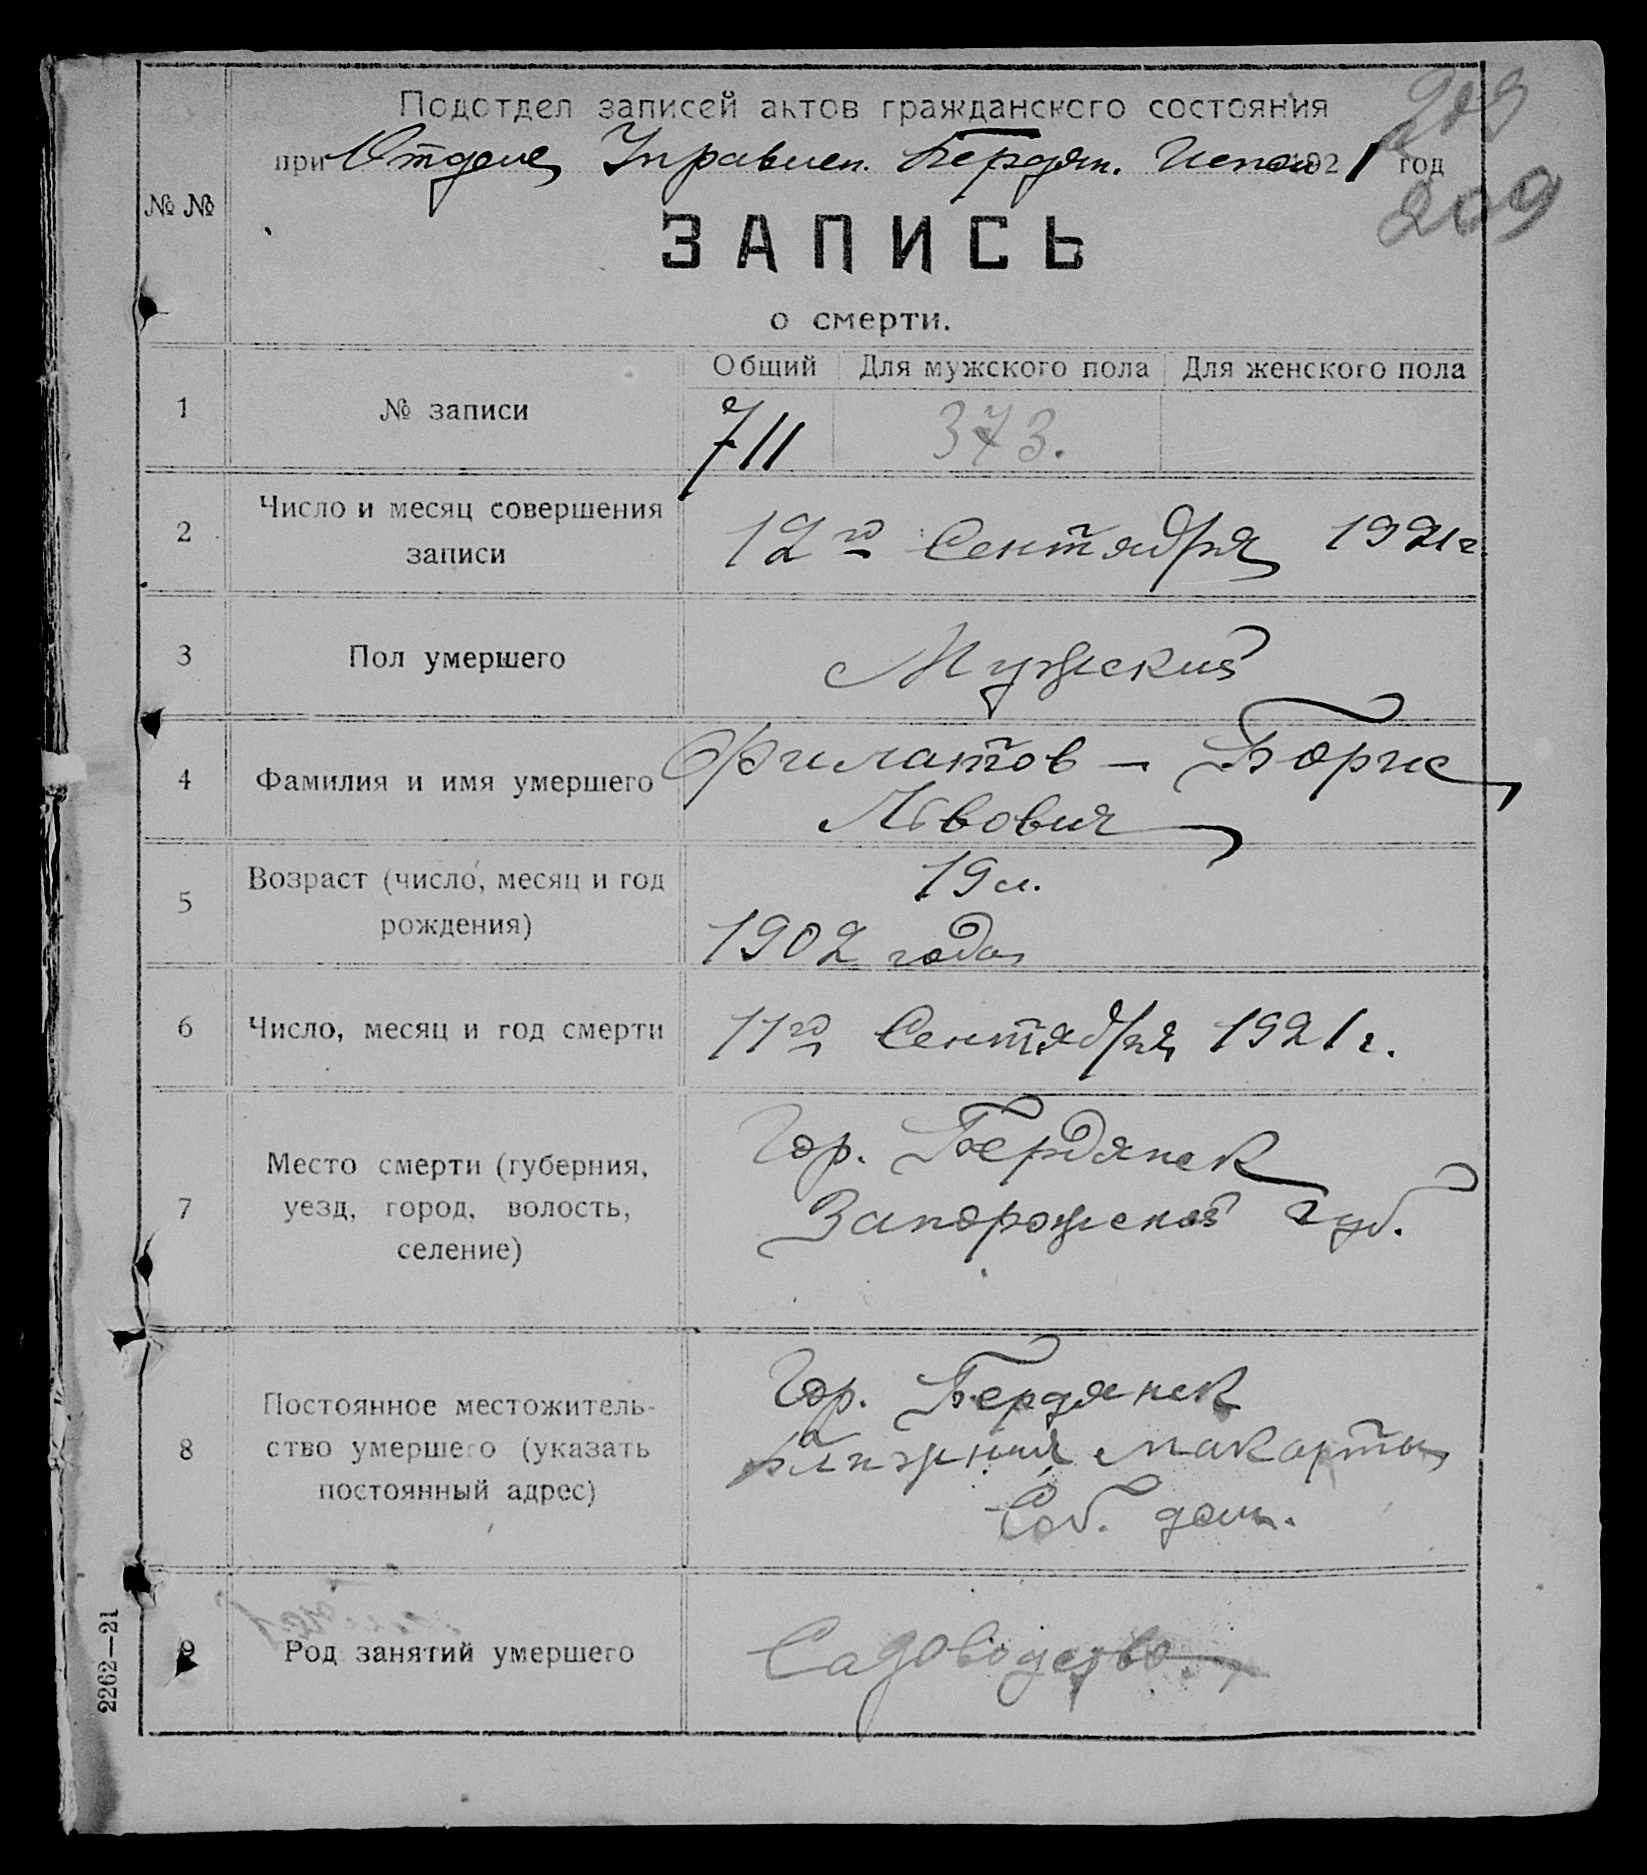 209
Подотдел записей актов гражданского состояния
при Отделе Управлен. Бердян. Испол 1921 год
209
№ №
ЗАПИСЬ
о смерти.
Общий Для мужского пола Для женского пола
1 № записи 711 373.
2 Число и месяц совершения
записи 12го Сентября 1921 г.
3 Пол умершего Мужской
4 Фамилия и имя умершего Филатов – Борис
Львович
5 Возраст (число, месяц и год
рождения) 19 л.
1902 года
6 Число, месяц и год смерти 11го Сентября 1921 г.
7 Место смерти (губерния,
уезд, город, волость,
селение) Гор. Бердянск
Запорожской губ.
8 Постоянное местожитель-
ство умершего (указать
постоянный адрес) Гор. Бердянск
Ближния Макорты
Соб. дом.
9 Род занятий умершего Садоводство
2262—21